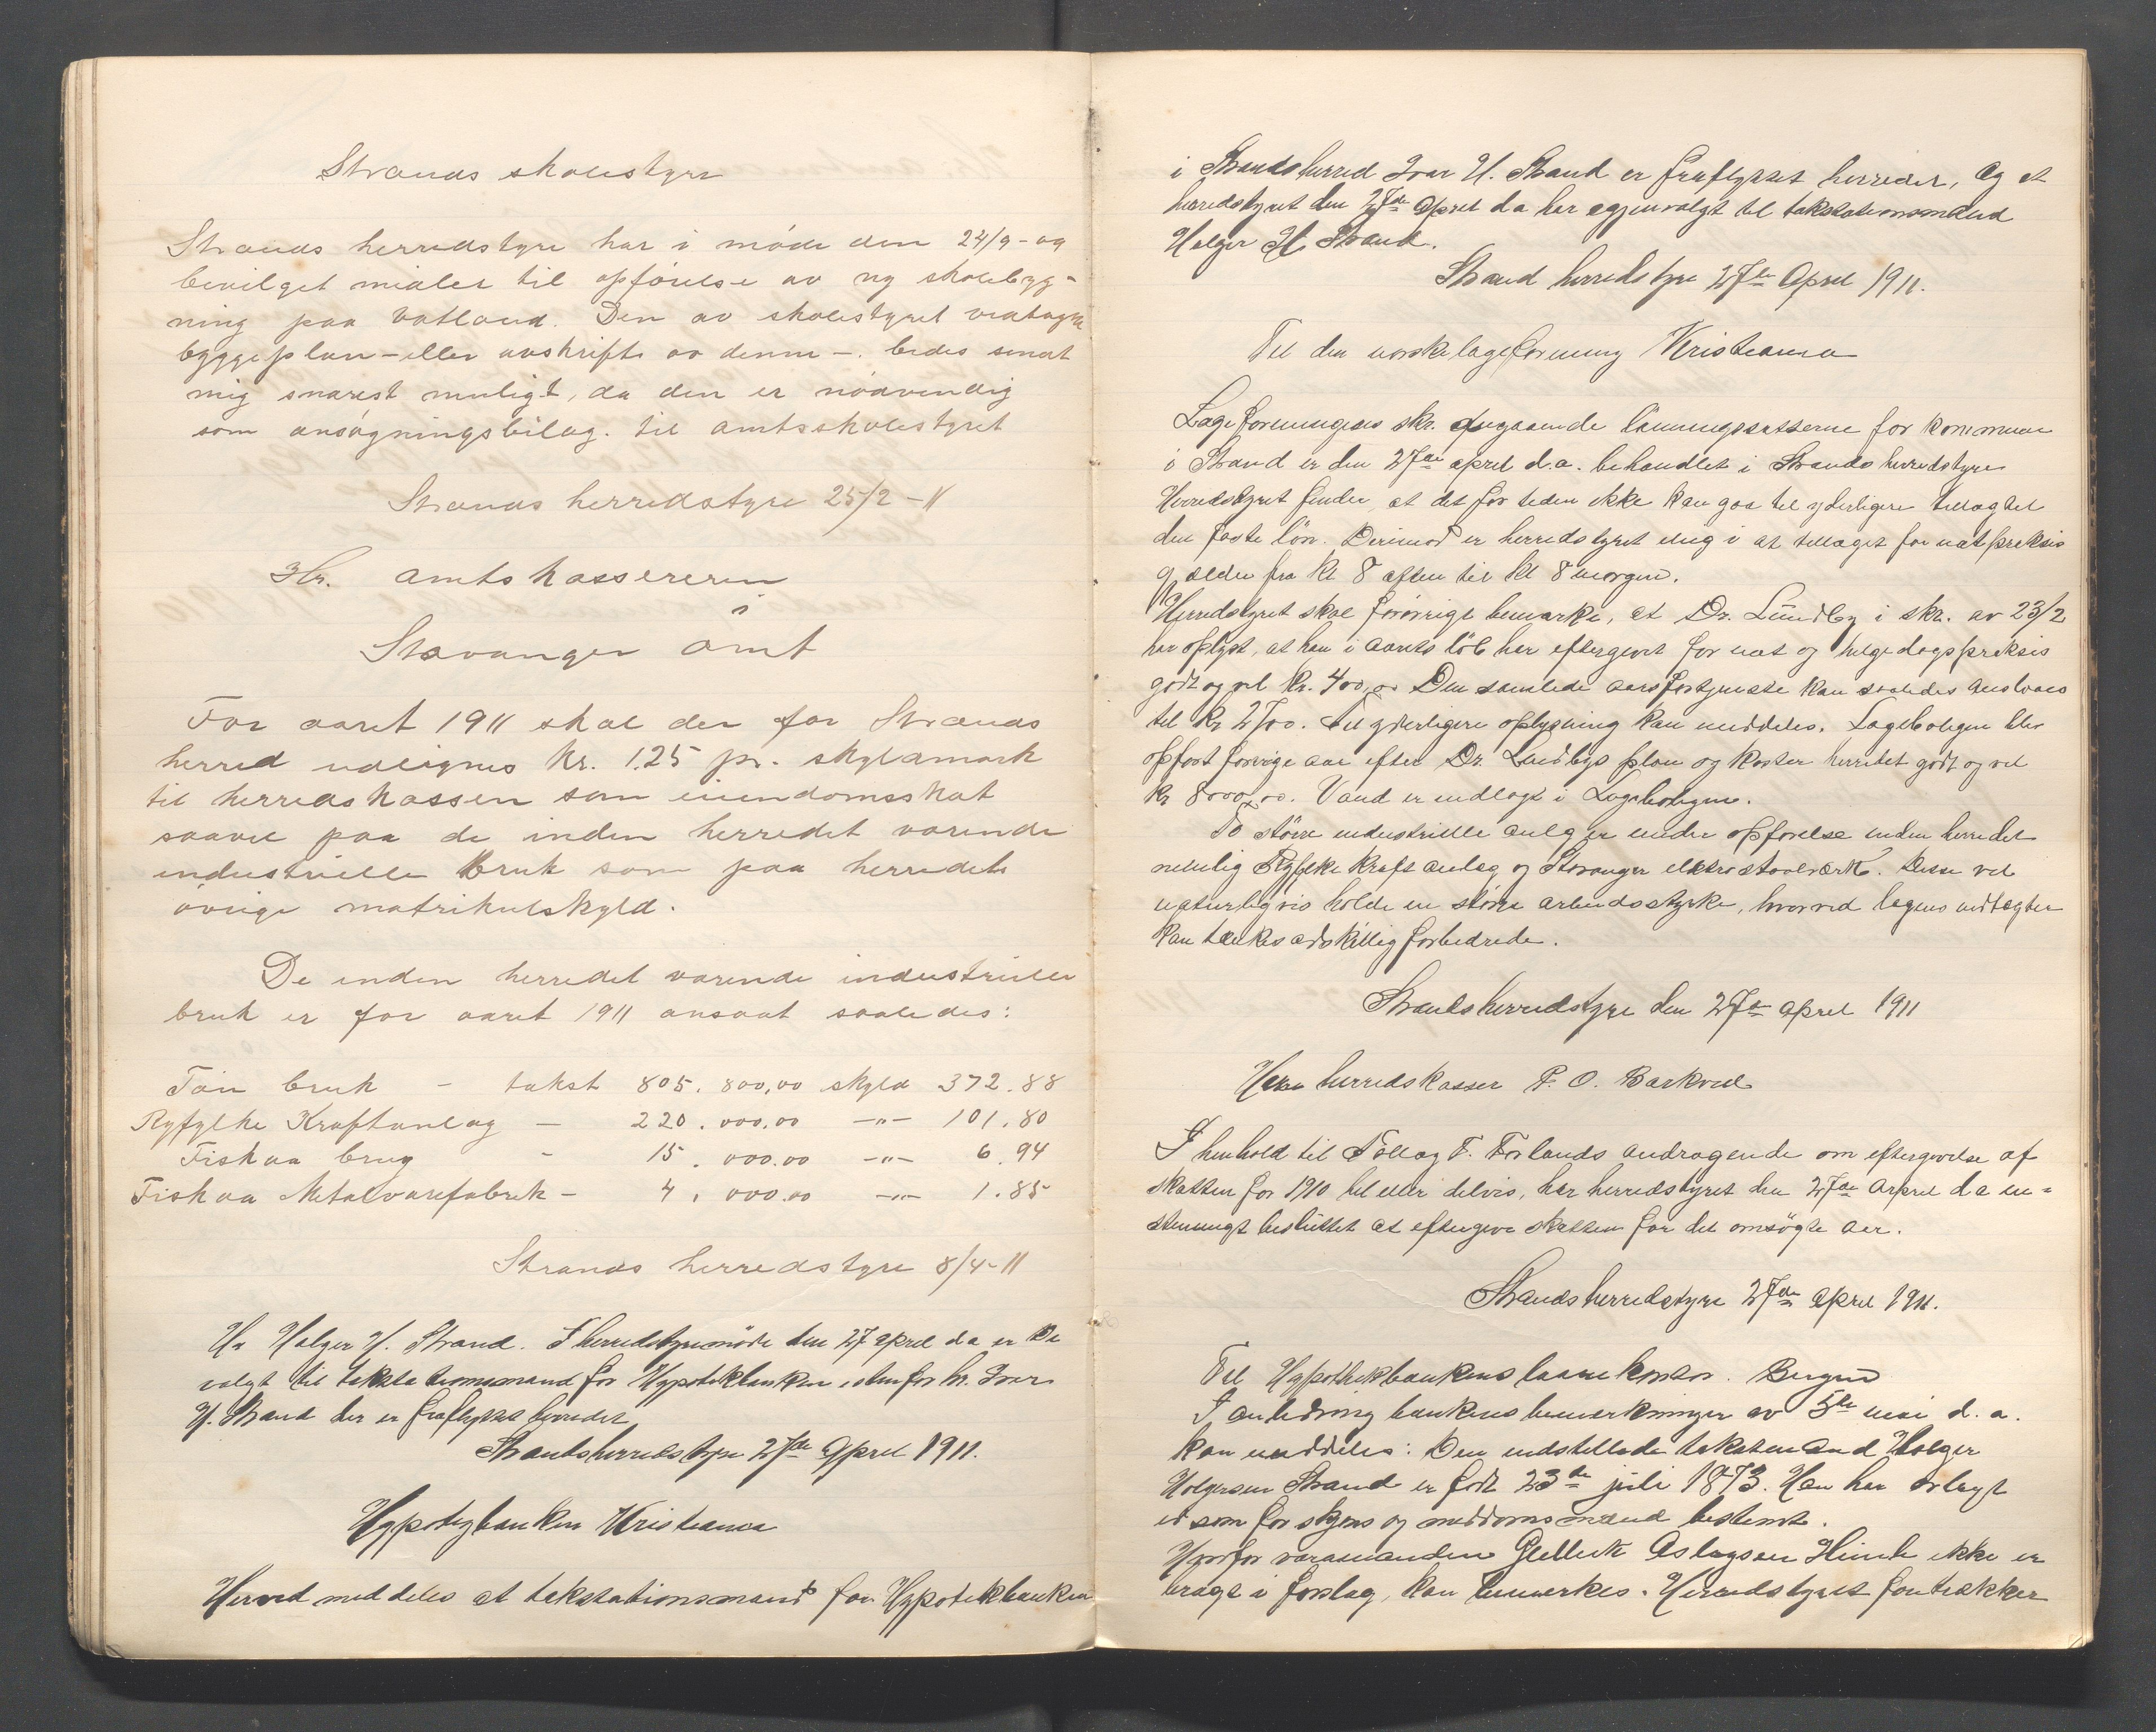 Strands skolestyre
Strands herredstyre har i møde den 24/9-09
bevilget midler til opførelse av ny skolebyg-
ning paa Vatland. Den av skolestyret vedtagne
byggeplan - eller avskrift av denne -. bedes sendt
mig snarest muligt, da den er nødvendig
som ansøgningsbilag. til amtsskolestyret
Strands herredstyre 25/2 - 11
Hr. amtskassereren
i
Stavanger amt
For aaret 1911 skal der for Strands
herred udlignes kr. 1.25 pr. skyldmark
til herredskassen som eiendomsskat
saavel paa de inden herredet værende
industrielle bruk som paa herredets
øvrige matrikulskyld.
De inden herredet værende industrielle
bruk er for aaret 1911 ansat saaledes:
Tau bruk - takst 805.800,00 skyld 372.88
Ryfylke Kraftanlæg - 220.000.00 -"- 101.80
Fiskaa brug - 15.000.00 -"- 6.94
Fiskaa Metalvarefabrik - 4.000.00 -"- 1.85
Strands herredstyre 8/4-11
Hr Holger H. Strand. I herredstyremøde den 27 april da er De
valgt til takstationsmand for Hypotekbanken istenfor hr. Ivar
H. Strand der er fraflyttet herredet
Strandsherredstyre 27de April 1911.
Hypotegbanken Kristiania
Herved meddeles at takstationsmand for Hypotekbanken
i Strandsherred Ivar H. Strand er fraflyttet herredet, Og at
herredstyret den 27de April da har ogjenvalgt til takstationsmænd
Holger H. Strand.
Strand herredstyre 27de April 1911.
Til den norske lægeforening Kristiania
Lægeforeningens skr. angaaende lønningssatserne for kommune
i Strand er den 27de april d.a. behandlet i Strands herredstyre
Herredstyret finder, at det for tiden ikke kan gaa til yderligere tillæg til
den faste løn. Derimod er herredstyret enig i at tillæget for natpraksis
gjælder fra kl 8 aften til kl 8 morgen.
Herredstyret skal forøvrigt bemærke, at Dr. Lundby i skr. av 23/2
har oplyst, at han i aarets løb har eftergivet for nat og helgedagspraksis
godt og vel kr. 400,00 Den samlede aarsfortjeneste kan saaledes anslaaes
til kr 2700. Til yderligere oplysning kan meddeles. Lægeboligen blev
opført forrige aar efter Dr. Lundbys plan og koster herredet godt og vel
kr 8000,00. Vand er indlagt i Lægeboligen.
To større industrielle anlæg er under opførelse inden herredet
nemlig Ryfylke kraftanlæg og Stavanger elektrostaalverk. Disse vil
naturligvis holde en større arbeidsstyrke, hvorved lægens indtægter
kan tænkes adskillig forbedrede.
Strandsherredstyre den 27de april 1911
Herr herredskasser P. O. Barkved
I henhold til Tollag T. Forlands andragende om eftergivelse af
skatten for 1910 hel eller delvis, har herredstyret den 27de April da en=
stemmigt besluttet at eftergive skatten for det omsøgte aar.
Strandsherredstyre 27de april 1911.
Til Hypothekbankens laanekontor. Bergen
I anledning bankens bemerkninger av 5te mai d. a.
kan meddeles: Den indstillede takstmand Holger
Holgersen Strand er født 23de juli 1873. Han har avlagt
ed som for skjøns og meddomsmænd bestemt.
Hvorfor varamanden Aslagsen ikke er
bragt i forslag, kan bemerkes. Herredstyret foretrækker